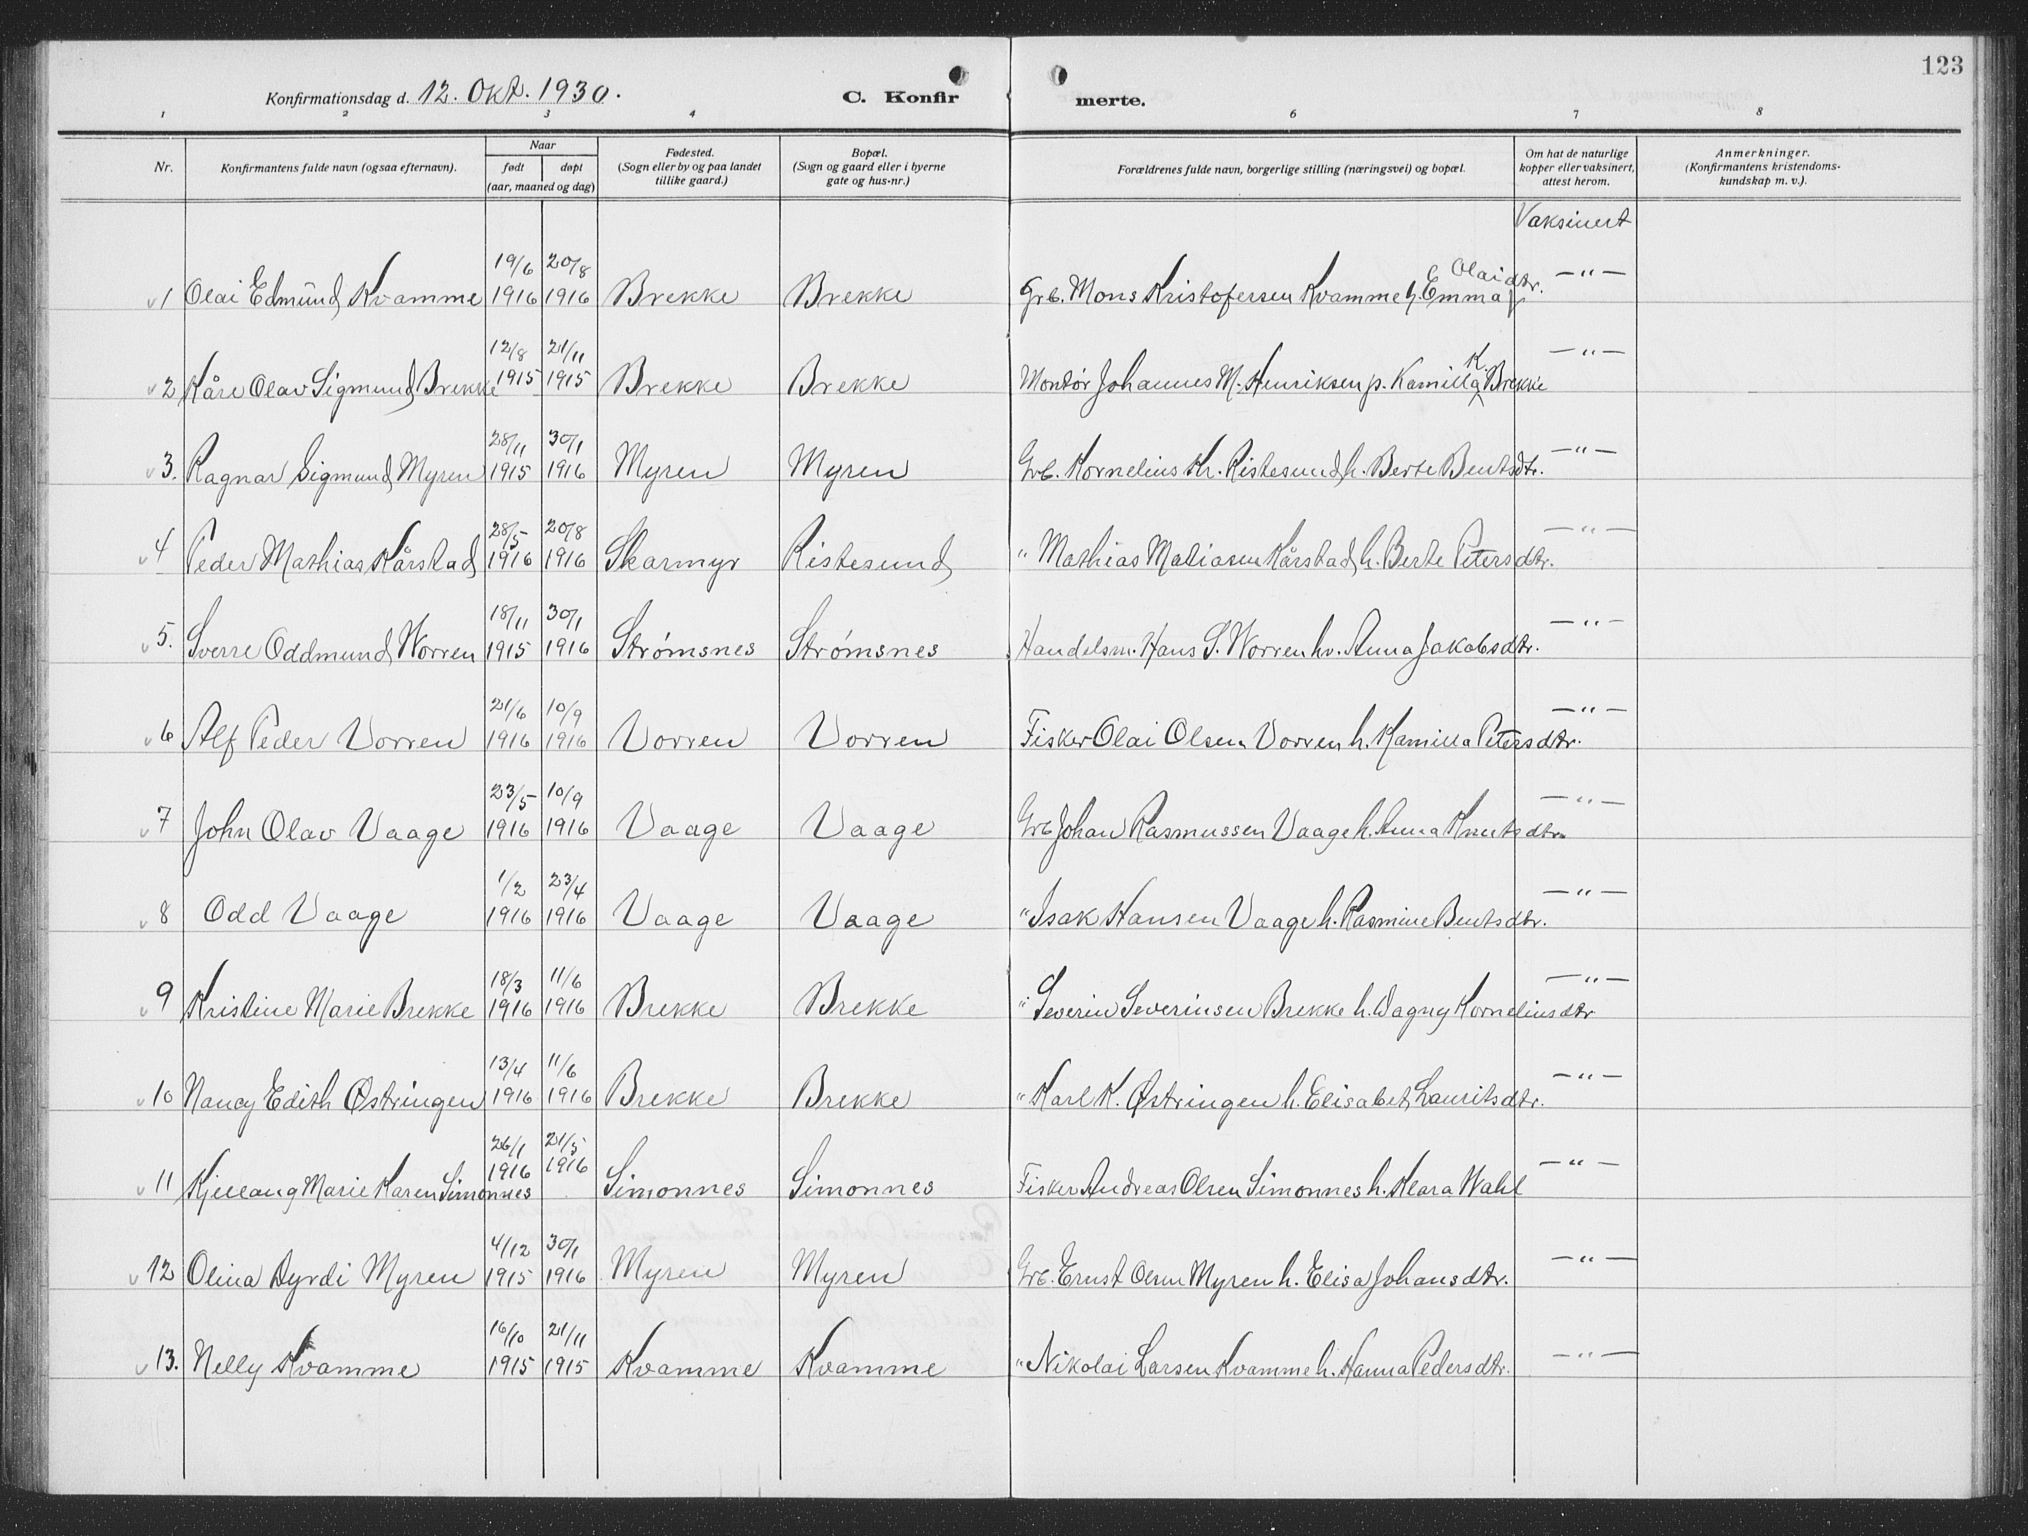 123
Konfirmationsdag d. 12. Okt. 1930. C. Konfir merte.
1 2 3 4 6 7 8
Nr. Konfirmantens fulde navn (ogsaa efternavn). Naar født døpt (aar, maaned og dag) Fødested. (Sogn eller by og paa landet tillike gaard.) Bopæl. (Sogn og gaard eller i byerne gate og hus-nr.) Forældrenes fulde navn, borgerlige stilling (næringsvei) og bopæl. Om hat de naturlige kopper eller vaksinert, attest herom. Anmerkninger. (Konfirmantens kristendoms-kundskap m. v.).
Vaksinert
v 1 Olai Edmund Kvamme 19/6 1916 20/8 1916 Brekke Brekke Grb. Mons Kristofersen Kvamme h. Emma E Olaidtr. —"—
v 2 Kåre Olav Sigmund Brekke 12/8 1915 21/11 1915 Brekke Brekke Montør Johannes M. Henriksen p. Kamilla K. Brekke —"—
v 3. Ragnar Sigmund Myren 28/11 1915 30/1 1916 Myren Myren Grb. Kornelius Kr. Ristesund h. Berte Bentsdtr. —"—
v 4 Peder Mathias Kårstad 28/5 1916 20/8 1916 Skarmyr Ristesund " Mathias Matiasen Kårstad h. Berte Petersdtr. —"—
v 5. Sverre Oddmund Worren 18/11 1915 30/1 1916 Strømsnes Strømsnes Handelsm. Hans S. Worren hv. Anna Jakobsdtr. —"—
v 6 Alf Peder Vorren 21/6 1916 10/9 1916 Vorren Vorren Fisker Olai Olsen Vorren h. Kamilla Petersdtr. —"—
v 7 John Olav Vaage 23/5 1916 10/9 1916 Vaage Vaage Grb Johan Rasmussen Vaage h. Anna Knutsdtr. —"—
v 8 Odd Vaage 1/2 1916 23/4 1916 Vaage Vaage " Isak Hansen Vaage h. Rasmine Bentsdtr. —"—
v 9 Kristine Marie Brekke 18/3 1916 11/6 1916 Brekke Brekke " Severin Severinsen Brekke h. Dagny Korneliusdtr —"—
v 10 Nancy Edith Østringen 13/4 1916 11/6 1916 Brekke Brekke " Karl K. Østringen h. Elisabet Lauritsdtr. —"—
v 11 Kjellaug Marie Karen Simonnes 26/1 1916 21/5 1916 Simonnes Simonnes Fisker Andreas Olsen Simonnes h. Klara Wahl —"—
v 12 Olina Dyrdi Myren 4/12 1915 30/1 1916 Myren Myren Grb. Ernst Olsen Myren h. Elisa Johansdtr. —"—
v 13. Nelly Kvamme 16/10 1915 21/11 1915 Kvamme Kvamme " Nikolai Larsen Kvamme h. Hanna Pedersdtr. —"—